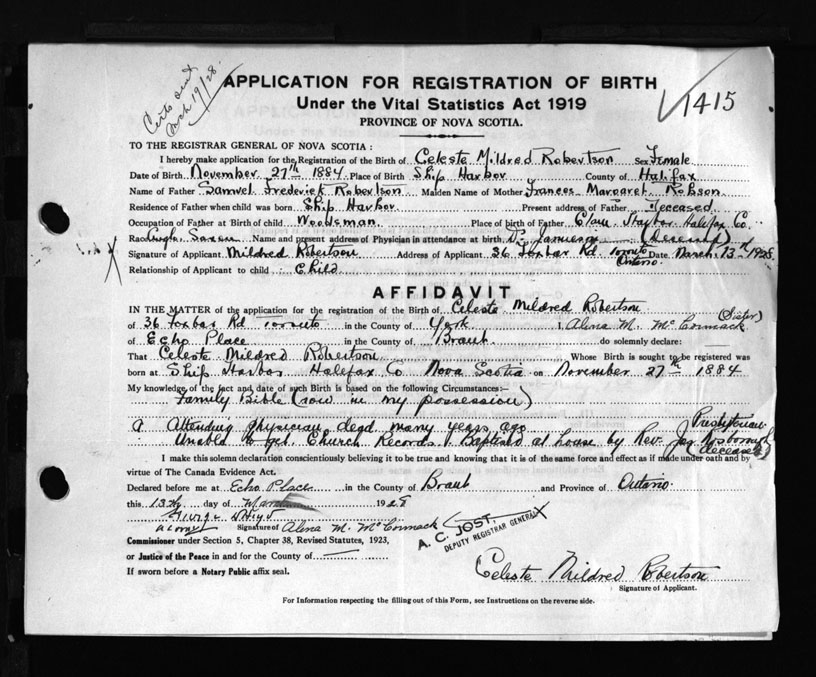 Certs out
Mch 19/28.
APPLICATION FOR REGISTRATION OF BIRTH
Under the Vital Statistics Act 1919
PROVINCE OF NOVA SCOTIA.
1415
TO THE REGISTRAR GENERAL OF NOVA SCOTIA :
I hereby make application for the Registration of the Birth of Celeste Mildred Robertson Sex Female
Date of Birth November 27th 1884 Place of Birth Ship Harbor County of Halifax
Name of Father Samuel Frederick Robertson Maiden Name of Mother Frances Margaret Robson
Residence of Father when child was born Ship Harbor Present address of Father Deceased
Occupation of Father at Birth of child Woodsman Place of birth of Father Clam Harbor Halifax Co.
Race Anglo Saxon Name and present address of Physician in attendance at birth Dr. Jamieson (Deceased)
Signature of Applicant Mildred Robertson Address of Applicant 36 Foxbar Rd Toronto Ontario. Date March 13th 1928
Relationship of Applicant to child : Child
AFFIDAVIT
IN THE MATTER of the application for the registration of the Birth of Celeste Mildred Robertson
of 36 Foxbar Rd Toronto in the County of York I, Alena M. McCormack (Sister)
of Echo Place in the County of Brant do solemnly declare:
That Celeste Mildred Robertson Whose Birth is sought to be registered was
born at Ship Harbor Halifax Co Nova Scotia on November 27th 1884
My knowledge of the fact and date of such Birth is based on the following Circumstances:—
Family Bible (now in my possession)
Attending physician dead many years ago
Unable to get Church Records. Baptised at house by Rev. Presbyterian (deceased)
I make this solemn declaration conscientiously believing it to be true and knowing that it is of the same force and effect as if made under oath and by
virtue of The Canada Evidence Act.
Declared before me at Echo Place in the County of Brant and Province of Ontario.
this 13th day of March 1928
George
Signature of Alena M. McCormack
A. C. JOST
DEPUTY REGISTRAR GENERAL
Commissioner under Section 5, Chapter 38, Revised Statutes, 1923,
or Justice of the Peace in and for the County of
If sworn before a Notary Public affix seal.
Celeste Mildred Robertson
Signature of Applicant.
For Information respecting the filling out of this Form, see Instructions on the reverse side.